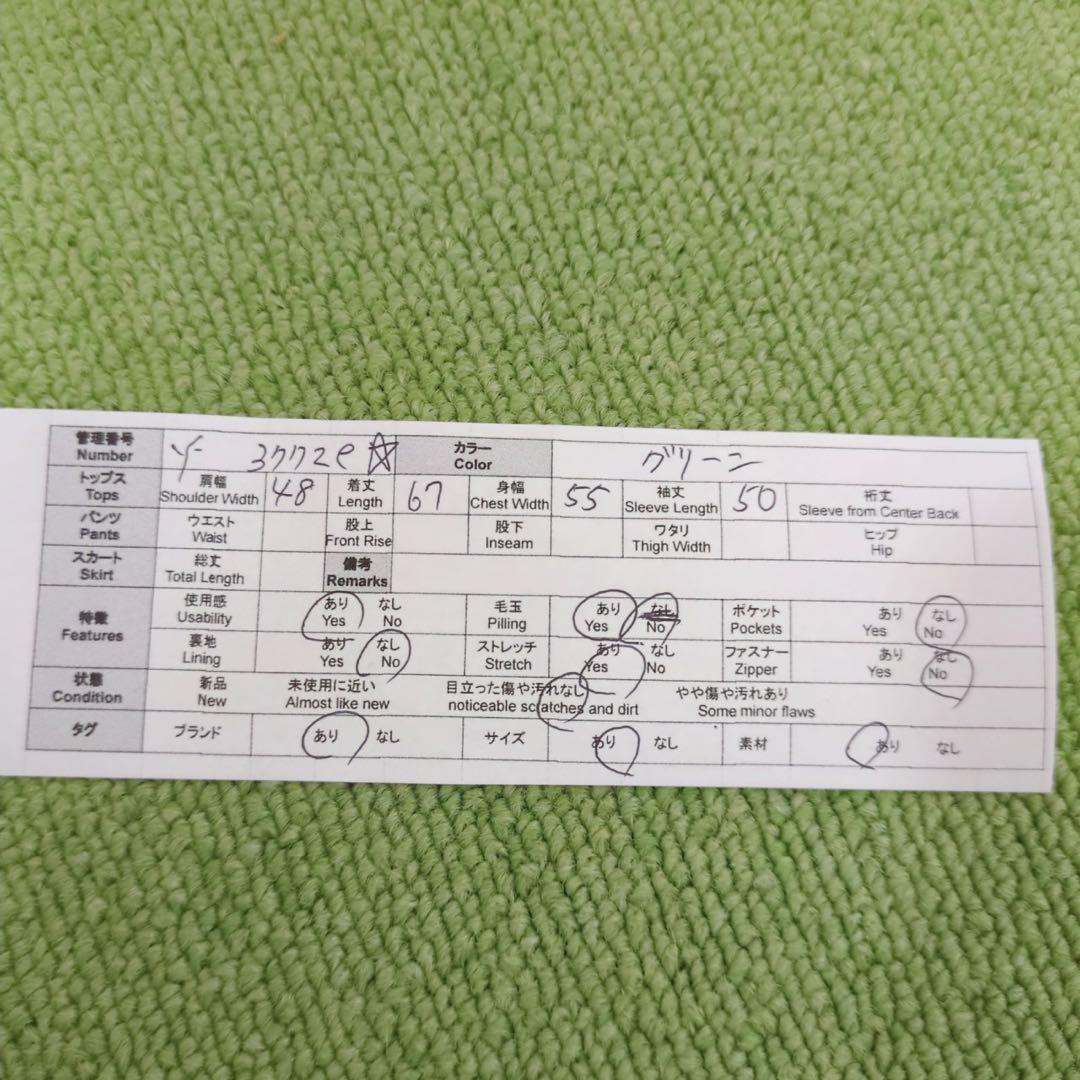 管理番号 Number Y- 3772e☆ カラー Color グリーン
トップス Tops 肩幅 Shoulder Width 48 着丈 Length 67 身幅 Chest Width 55 袖丈 Sleeve Length 50 裄丈 Sleeve from Center Back
パンツ Pants ウエスト Waist 股上 Front Rise 股下 Inseam ワタリ Thigh Width ヒップ Hip
スカート Skirt 総丈 Total Length 備考 Remarks
特徴 Features 使用感 Usability あり Yes なし No 毛玉 Pilling あり Yes なし No ポケット Pockets あり Yes なし No
裏地 Lining あり Yes なし No ストレッチ Stretch あり Yes なし No ファスナー Zipper あり Yes なし No
状態 Condition 新品 New 未使用に近い Almost like new 目立った傷や汚れなし noticeable scratches and dirt やや傷や汚れあり Some minor flaws
タグ ブランド あり なし サイズ あり なし 素材 あり なし